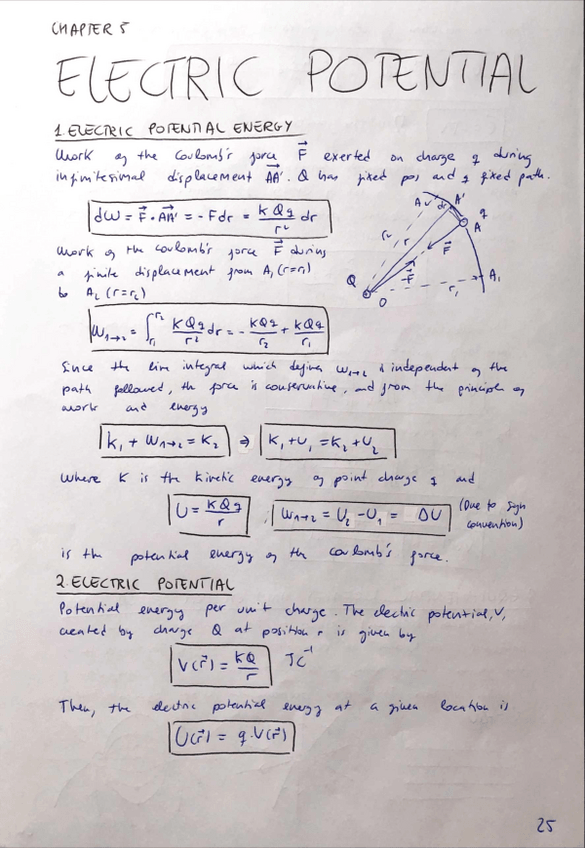 CHAPTER 5
ELECTRIC POTENTIAL
1. ELECTRIC POTENTIAL ENERGY
Work of the Coulomb's force F⃗ exerted on charge q during
infinitesimal displacement AA'⃗. Q has fixed pos and q fixed path.
dW = F⃗ · AA'⃗ = -Fdr = kQq/r² dr
Work of the Coulomb's force F⃗ during
a finite displacement from A₁ (r=r₁)
to A₂ (r=r₂)
A₂ dr A' q
r₂ r F⃗ A
Q -F⃗ r₁ A₁
O
W₁→₂ = ∫r₁^r₂ kQq/r² dr = -kQq/r₂ + kQq/r₁
Since the line integral which defines W₁→₂ is independent of the
path followed, the force is conservative, and from the principle of
work and energy
K₁ + W₁→₂ = K₂ ⇒ K₁+U₁ = K₂+U₂
Where K is the kinetic energy of point charge q and
U = kQq/r ; W₁→₂ = U₂ - U₁ = ΔU (Due to sign
convention)
is the potential energy of the coulomb's force.
2. ELECTRIC POTENTIAL
Potential energy per unit charge. The electric potential, V,
created by charge Q at position r is given by
V(r⃗) = kQ/r JC⁻¹
Then, the electric potential energy at a given location is
U(r⃗) = q·V(r⃗)
25